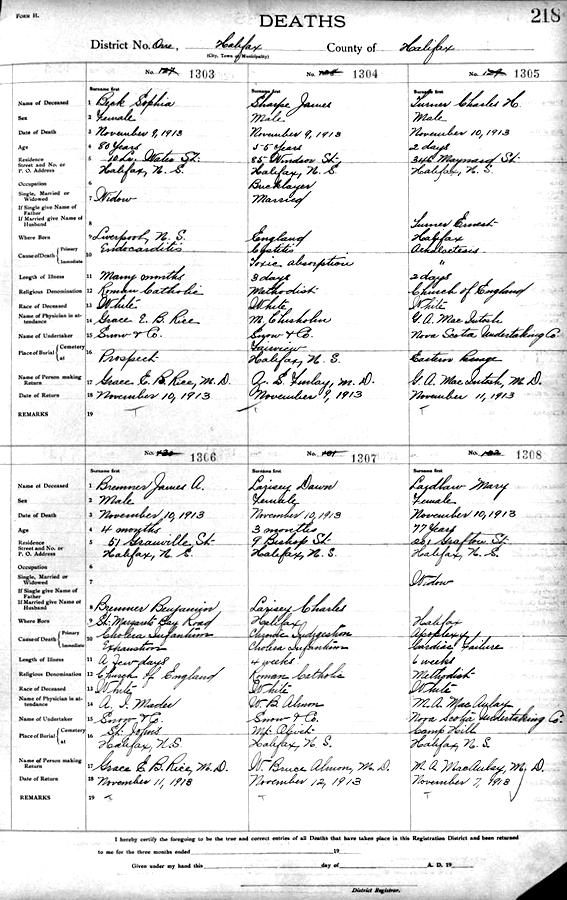 FORM H.
DEATHS
218
District No. One, Halifax County of Halifax
(City, Town or Municipality)
No. 1303 No. 1304 No. 1305
Surname first Surname first Surname first
Name of Deceased 1 Beck Sophia Sharpe James Turner Charles H.
Sex 2 Female Male Male
Date of Death 3 November 9, 1913 November 9, 1913 November 10, 1913
Age 4 80 Years 55 Years 2 days
Residence 5 Water St. 85 Windsor St. Maynard St.
Street and No. or
P. O. Address Halifax, N. S. Halifax, N. S. Halifax, N. S.
Occupation 6 Bricklayer
Single, Married or
Widowed 7 Widow Married
If Single give Name of
Father
If Married give Name of
Husband 8 Turner Ernest
Where Born 9 Liverpool, N. S. England Halifax
Cause of Death Primary 10 Endocarditis Cystitis Atelectasis
Immediate Toxic absorption "
Length of Illness 11 Many months 3 days 2 days
Religious Denomination 12 Roman Catholic Methodist Church of England
Race of Deceased 13 White White White
Name of Physician in attendance 14 Grace E. B. Rice M. Chisholm G. A. MacIntosh
Name of Undertaker 15 Snow & Co. Snow & Co. Nova Scotia Undertaking Co
Place of Burial Cemetery at 16 Prospect Fairview Halifax, N. S. Eastern Passage
Name of Person making
Return 17 Grace E. B. Rice, M. D. Finlay, M. D. G. A. MacIntosh, M. D.
Date of Return 18 November 10, 1913 November 9, 1913 November 11, 1913
REMARKS 19
No. 1306 No. 1307 No. 1308
Surname first Surname first Surname first
Name of Deceased 1 Bremner James A. Larisey Dawn Laidlaw Mary
Sex 2 Male Female Female
Date of Death 3 November 10, 1913 November 10, 1913 November 10, 1913
Age 4 4 months 3 months 77 Years
Residence 5 51 Granville St. 9 Bishop St. Grafton St.
Street and No. or
P. O. Address Halifax, N. S. Halifax, N. S. Halifax, N. S.
Occupation 6
Single, Married or
Widowed 7 Widow
If Single give Name of
Father
If Married give Name of
Husband 8 Bremner Benjamin Larisey Charles
Where Born 9 St. Margarets Bay Road Halifax Halifax
Cause of Death Primary 10 Cholera Infantum Chronic Indigestion Apoplexy
Immediate Exhaustion Cholera Infantum Cardiac Failure
Length of Illness 11 A few days 4 weeks 6 weeks
Religious Denomination 12 Church of England Roman Catholic Methodist
Race of Deceased 13 White White White
Name of Physician in attendance 14 A. I. Mader W. B. Almon M. A. MacAulay
Name of Undertaker 15 Snow & Co. Snow & Co. Nova Scotia Undertaking Co.
Place of Burial Cemetery at 16 St. Johns Mt. Olivet Camp Hill
Halifax, N. S. Halifax, N. S. Halifax, N. S.
Name of Person making
Return 17 Grace E. B. Rice, M. D. W. Bruce Almon, M. D. M. A. MacAulay, M. D.
Date of Return 18 November 11, 1913 November 12, 1913 November 7, 1913
REMARKS 19
I hereby certify the foregoing to be the true and correct entries of all Deaths that have taken place in this Registration District and been returned
to me for the three months ended 19
Given under my hand this day of A. D. 19
District Registrar.